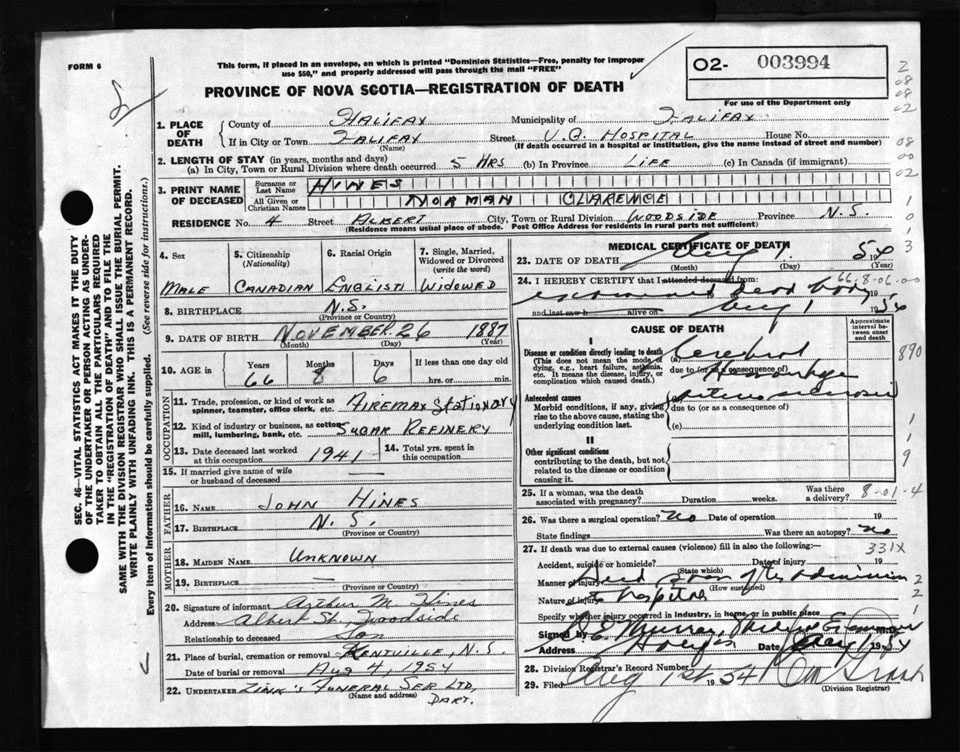 FORM 6
This form, if placed in an envelope, on which is printed "Dominion Statistics—Free, penalty for improper
use $50," and properly addressed will pass through the mail "FREE"
PROVINCE OF NOVA SCOTIA—REGISTRATION OF DEATH
O2- 003994
For use of the Department only
1. PLACE OF DEATH
County of HALIFAX Municipality of HALIFAX
If in City or Town HALIFAX Street V.G. HOSPITAL House No.
(Name) (If death occurred in a hospital or institution, give the name instead of street and number)
2. LENGTH OF STAY (in years, months and days)
(a) In City, Town or Rural Division where death occurred 5 HRS (b) In Province LIFE (c) In Canada (if immigrant)
3. PRINT NAME OF DECEASED
Surname or Last Name HINES
All Given or Christian Names NORMAN CLARENCE
RESIDENCE No. 4 Street ALBERT City, Town or Rural Division WOODSIDE Province N.S.
(Residence means usual place of abode. Post Office Address for residents in rural parts not sufficient)
4. Sex MALE
5. Citizenship (Nationality) CANADIAN
6. Racial Origin ENGLISH
7. Single, Married, Widowed or Divorced (write the word) WIDOWED
8. BIRTHPLACE N.S.
(Province or Country)
9. DATE OF BIRTH NOVEMBER 26 1887
(Month) (Day) (Year)
10. AGE in Years Months Days If less than one day old
66 8 6 hrs. or min.
OCCUPATION
11. Trade, profession, or kind of work as spinner, teamster, office clerk, etc. FIREMAN STATIONARY
12. Kind of industry or business, as cotton mill, lumbering, bank, etc. SUGAR REFINERY
13. Date deceased last worked at this occupation 1941
14. Total yrs. spent in this occupation
15. If married give name of wife or husband of deceased —
FATHER
16. NAME JOHN HINES
17. BIRTHPLACE N.S.
(Province or Country)
MOTHER
18. MAIDEN NAME UNKNOWN
19. BIRTHPLACE —
(Province or Country)
20. Signature of informant Arthur M. Hines
Address Albert St. Woodside
Relationship to deceased Son
21. Place of burial, cremation or removal KENTVILLE, N.S.
Date of burial or removal AUG 4, 1954
22. UNDERTAKER ZINK'S FUNERAL SER LTD, DART.
(Name and address)
MEDICAL CERTIFICATE OF DEATH
23. DATE OF DEATH Aug 1. 1954
(Month) (Day) (Year)
24. I HEREBY CERTIFY that I attended deceased from: 66-8-06-00
examined dead body 19
and last saw h alive on Aug 1 1954
CAUSE OF DEATH
Approximate interval between onset and death
I
Disease or condition directly leading to death
(This does not mean the mode of dying, e.g., heart failure, asthenia, etc. It means the disease, injury, or complication which caused death.)
(a) Cerebral Hemorrhage
due to (or as a consequence of)
Antecedent causes
Morbid conditions, if any, giving rise to the above cause, stating the underlying condition last.
due to (or as a consequence of)
(c)
II
Other significant conditions
contributing to the death, but not related to the disease or condition causing it.
25. If a woman, was the death associated with pregnancy? Duration weeks. Was there a delivery? 8-01-4
26. Was there a surgical operation? no Date of operation 19
State findings Was there an autopsy? no
27. If death was due to external causes (violence) fill in also the following:— 331X
Accident, suicide or homicide? Date of injury 19
(State which)
Manner of injury Died soon after admission
(How sustained)
Nature of injury to hospital
Specify whether injury occurred in industry, in home, or in public place
Signed by Murray, Medical Examiner M.D.
Address Halifax Date Aug 1 1954
28. Division Registrar's Record Number
29. Filed Aug 1st 1954
(Division Registrar)
SEC. 46—VITAL STATISTICS ACT MAKES IT THE DUTY
OF THE UNDERTAKER OR PERSON ACTING AS UNDER-
TAKER TO OBTAIN ALL THE PARTICULARS REQUIRED
IN THE "REGISTRATION OF DEATH" AND TO FILE THE
SAME WITH THE DIVISION REGISTRAR WHO SHALL ISSUE THE BURIAL PERMIT.
WRITE PLAINLY WITH UNFADING INK. THIS IS A PERMANENT RECORD.
Every item of information should be carefully supplied. (See reverse side for instructions.)
2
08
08
02
08
00
02
1
0
1
0
3
890
1
1
9
2
2
1